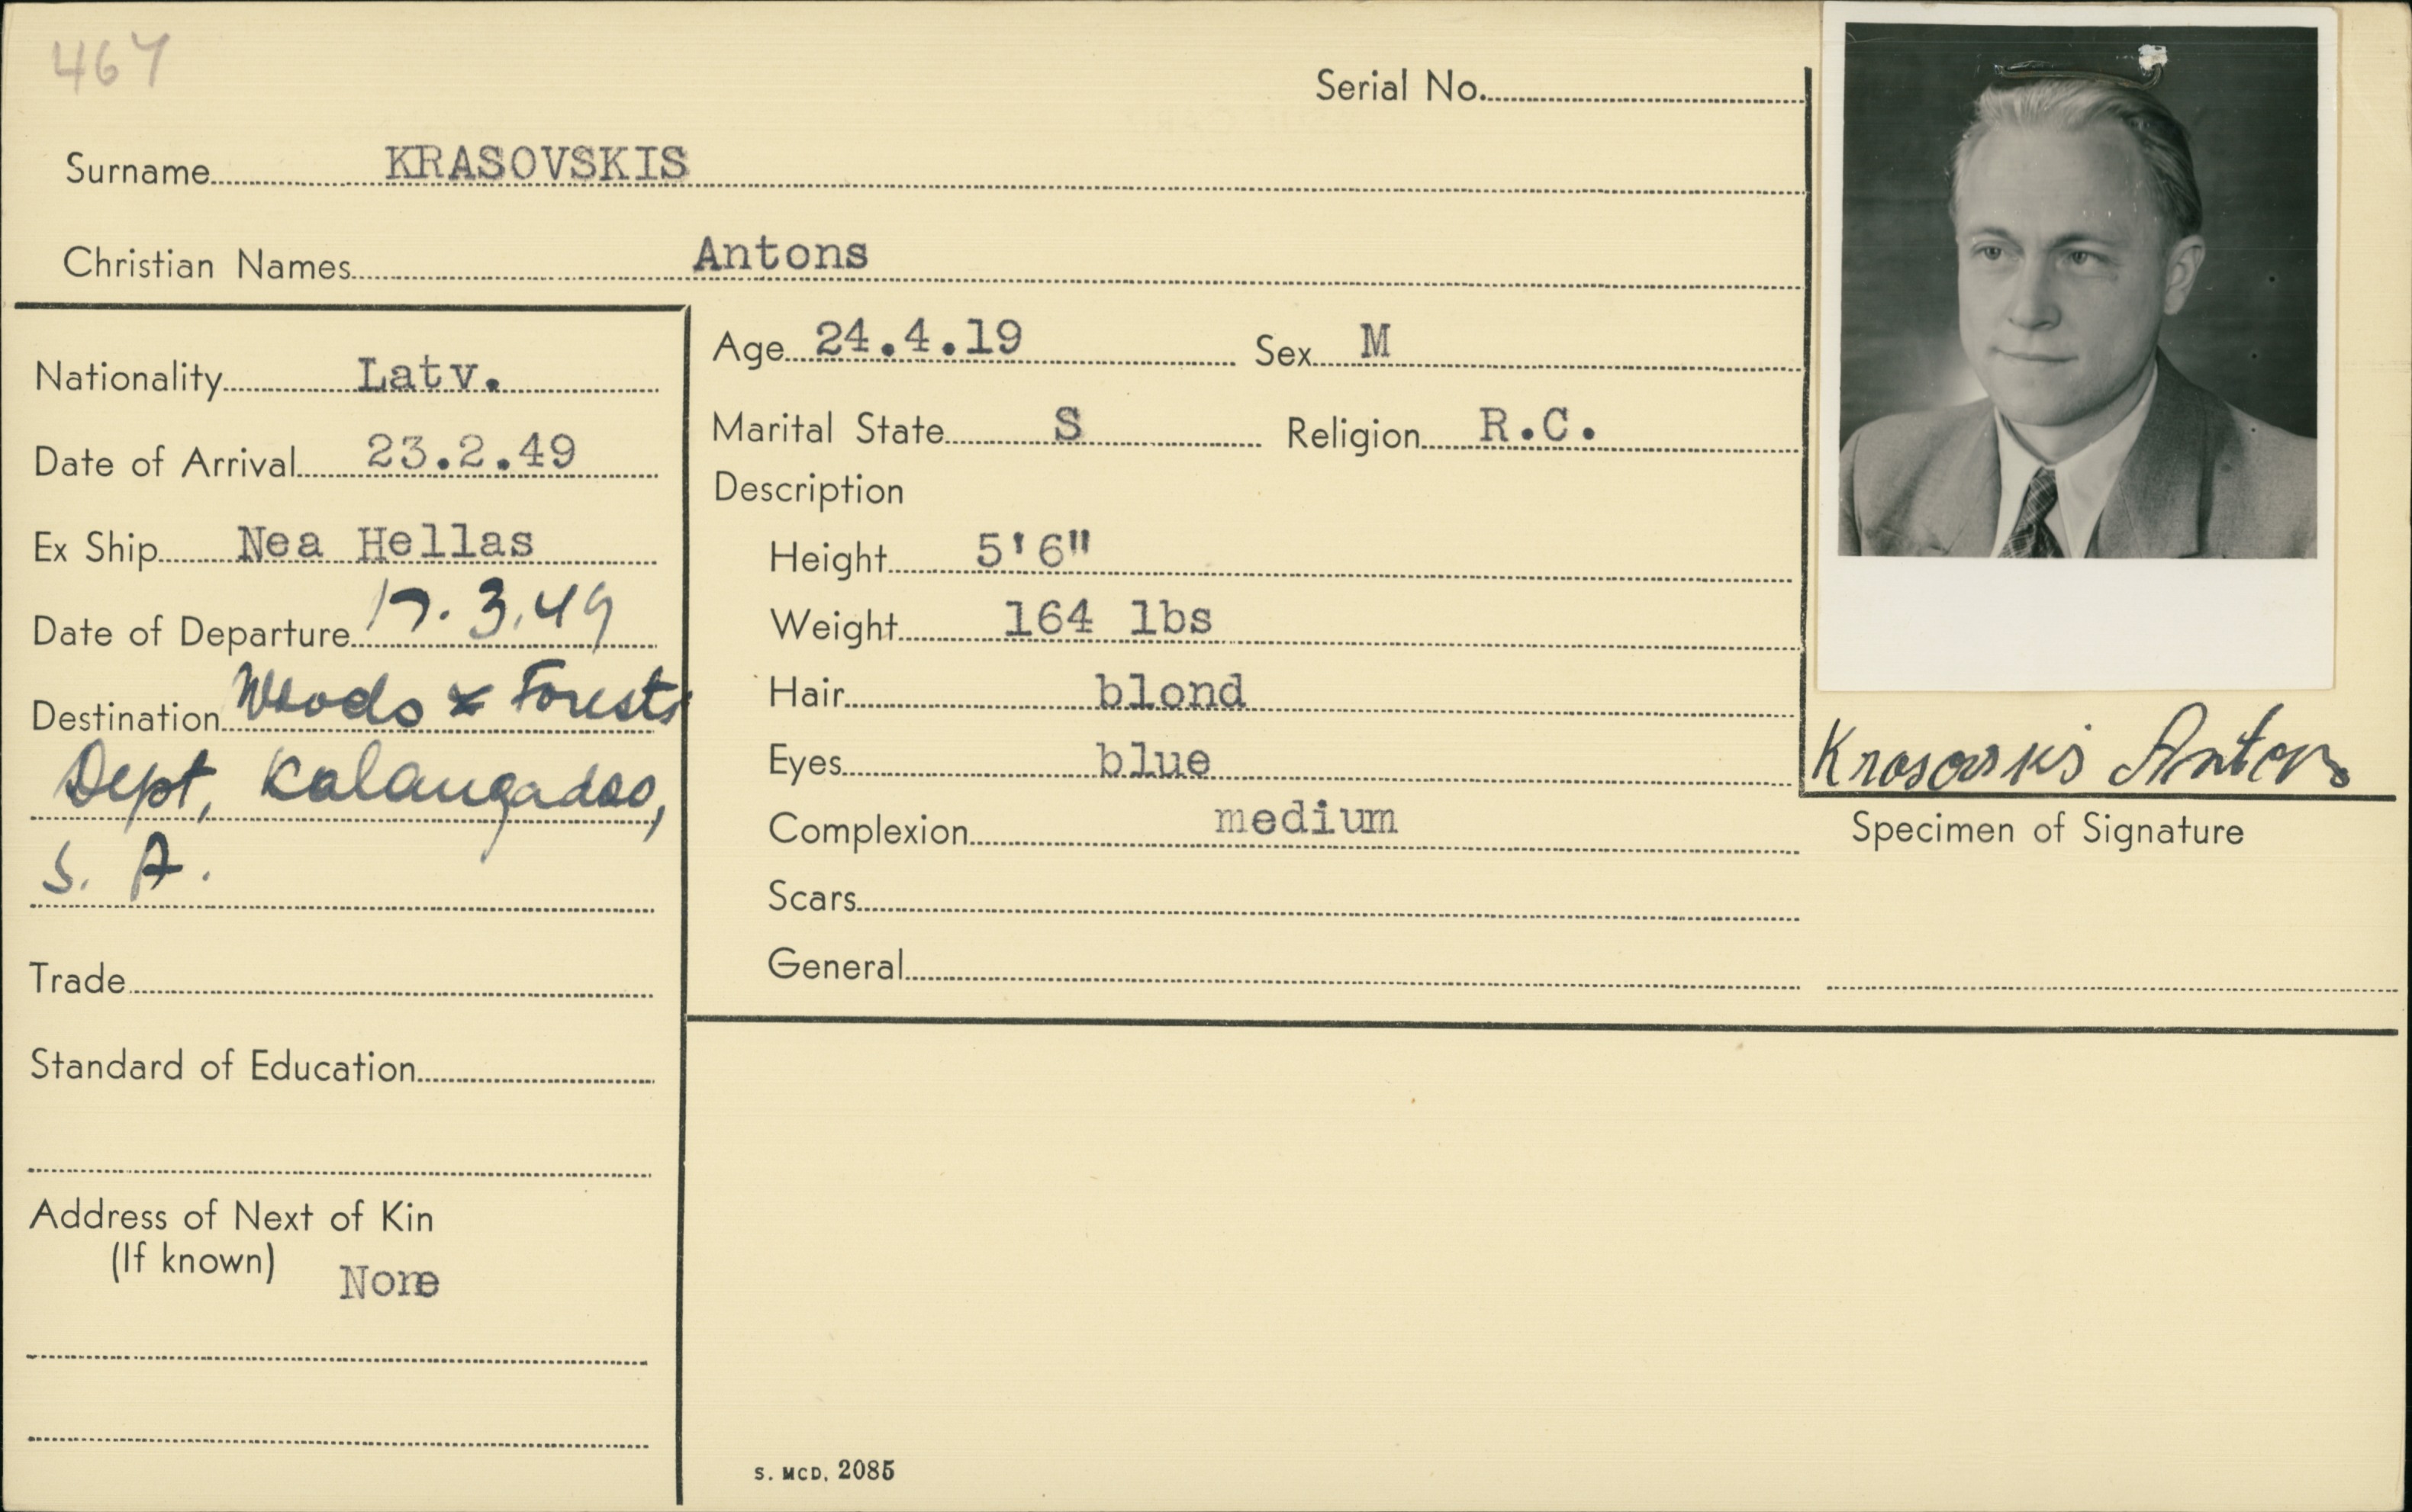 467
Serial No.
Surname KRASOVSKIS
Christian Names Antons
Nationality Latv.
Date of Arrival 23.2.49
Ex Ship Nea Hellas
Date of Departure 17.3.49
Destination Woods & Forests
Dept, Kalangadoo,
S. A.
Trade
Standard of Education
Address of Next of Kin
(If known) None
Age 24.4.19 Sex M
Marital State S Religion R.C.
Description
Height 5'6"
Weight 164 lbs
Hair blond
Eyes blue
Complexion medium
Scars
General
Krasovskis Antons
Specimen of Signature
S. MCD. 2085